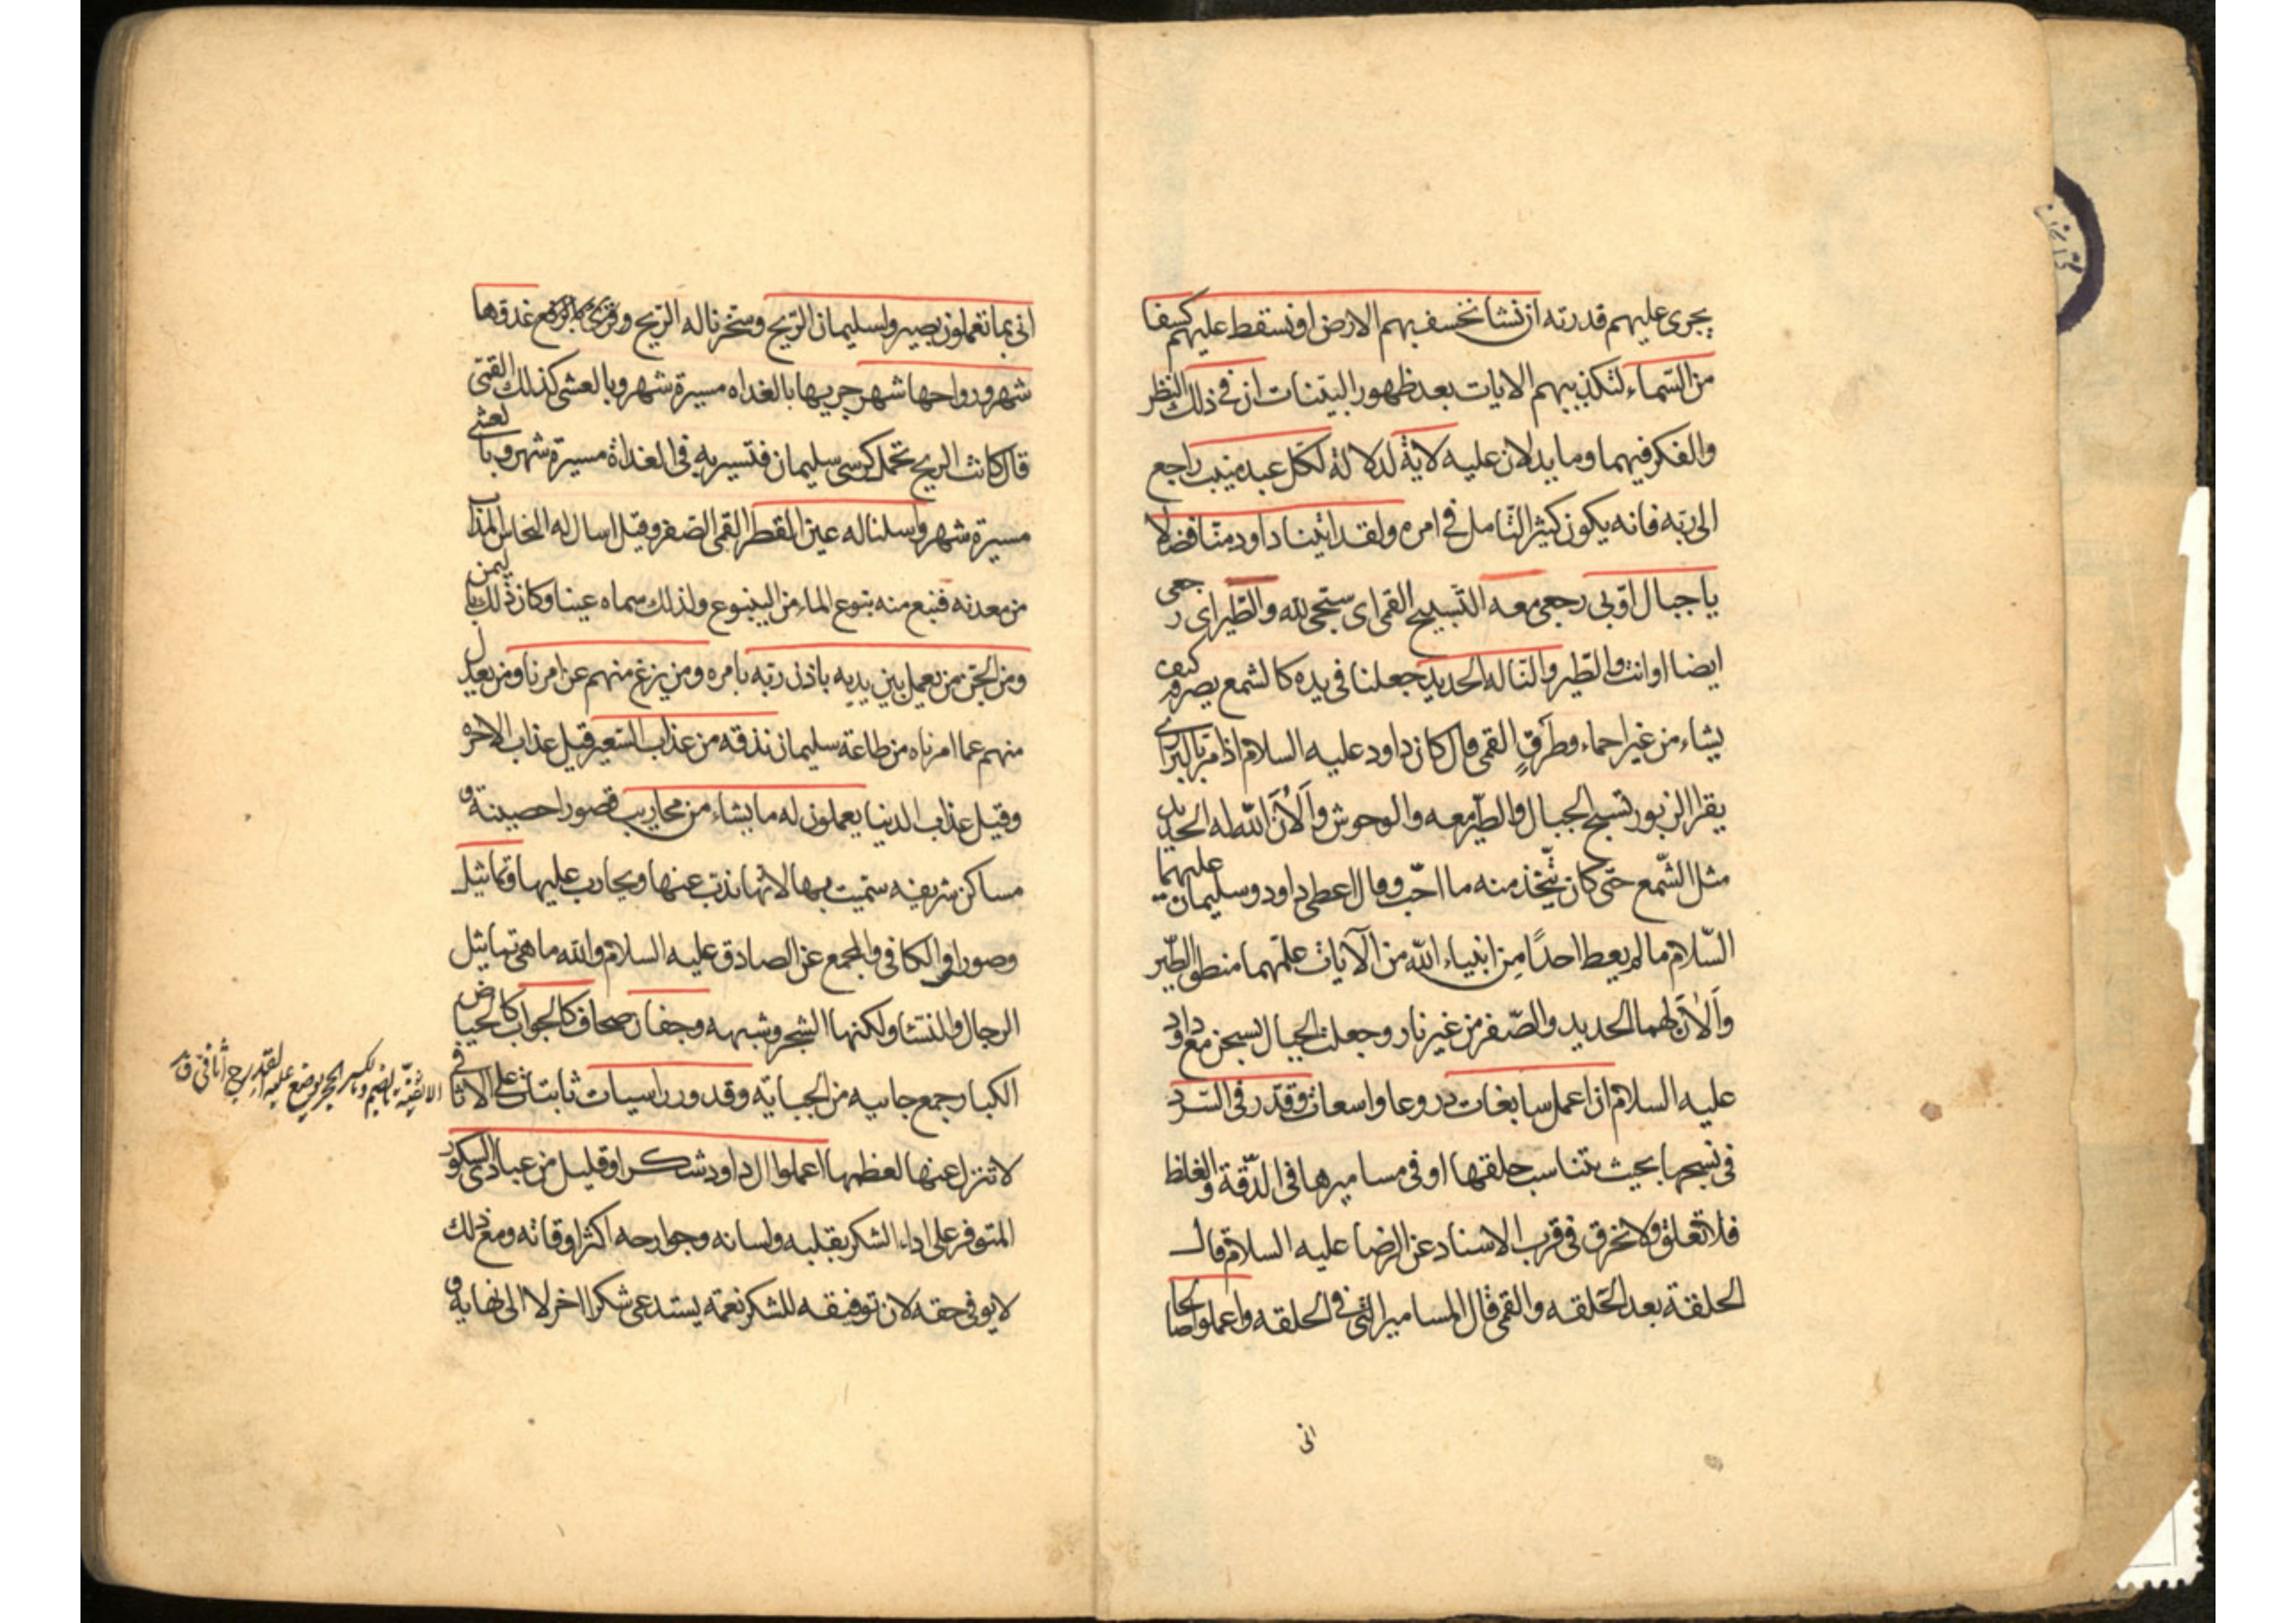 يجرى عليهم قدرته ان نشا نخسف بهم الارض او نسقط عليهم كسفا
من السماء لتكذيبهم الايات بعد ظهور البينات ان فى ذلك النظر
والفكر فيهما وما يدلان عليه لاية لدلالة لكل عبد منيب راجع
الى ربه فانه يكون كثير التامل فى امره ولقد اتينا داود منا فضلا
يا جبال اوبى رجعى معه التسبيح القمى اى سبحى لله والطير اى رجعى
ايضا او انت والطير والنا له الحديد جعلنا فى يده كالشمع يصرفه كيف
يشاء من غير احماء وطرق القمى قال كان داود عليه السلام اذا مر بالبرارى
يقرا الزبور تسبح الجبال والطير معه والوحوش والان الله له الحديد
مثل الشمع حتى كان يتخذ منه ما احب وقال اعطى داود وسليمان عليهما
السلام ما لم يعط احدا من انبياء الله من الايات علمهما منطق الطير
والان لهما الحديد والصفر من غير نار وجعلت الجبال يسبحن مع داود
عليه السلام ان اعمل سابغات دروعا واسعات وقدر فى السرد
فى نسجها بحيث يتناسب حلقها او فى مساميرها فى الدقة والغلظ
فلا تغلق ولا تخرق فى قرب الاسناد عن الرضا عليه السلام قال
الحلقة بعد الحلقه والقمى قال المسامير التى فى الحلقه واعملوا صالحا
انى
انى بما تعملون بصير ولسليمان الريح وسخرنا له الريح وقرى بالرفع غدوها
شهر ورواحها شهر جريها بالغداه مسيرة شهر وبالعشى كذلك القمى
قال كانت الريح تحمل كرسى سليمان فتسير به فى الغداة مسيرة شهر وبالعشى
مسيرة شهر واسلنا له عين القطر القمى الصفر وقيل اسال له النحاس المذاب
من معدنه فنبع منه ينبوع الماء من الينبوع ولذلك سماه عينا وكان ذلك باليمن
ومن الجن من يعمل بين يديه باذن ربه بامره ومن يزغ منهم عن امرنا ومن يعدل
منهم عما امرناه من طاعة سليمان نذقه من عذاب السعير قيل عذاب الاخره
وقيل عذاب الدنيا يعملون له ما يشاء من محاريب قصورا حصينة و
مساكن شريفه سميت بها لانها يذب عنها ويحارب عليها وتماثيل
وصورا والكافى والمجمع عن الصادق عليه السلام والله ما هى تماثيل
الرجال والنسا ولكنها الشجر وشبهه وجفان صحاف كالجواب كالحياض
الكبار جمع جابيه من الجبايه وقدور راسيات ثابتات على الاثافى
الاثفيّة بالضم وبالكسر الحجر يوضع عليه القدر ج اثافى ق
لا تنزل عنها لعظمها اعملوا ال داود شكرا وقليل من عبادى الشكور
المتوفر على اداء الشكر بقلبه ولسانه وجوارحه اكثر اوقاته ومع ذلك
لا يوفى حقه لان توفيقه للشكر نعمه يستدعى شكرا اخر لا الى نهايه و